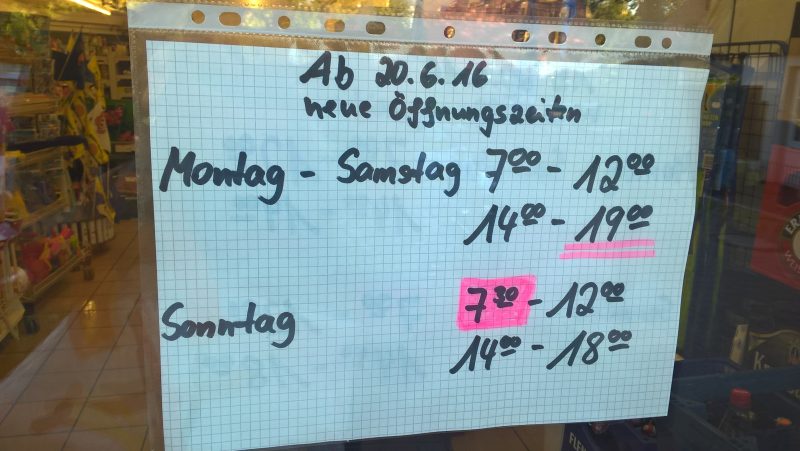 Ab 20.6.16
neue Öffnungszeiten
Montag - Samstag 7⁰⁰ - 12⁰⁰
14⁰⁰ - 19⁰⁰
Sonntag 7³⁰ - 12⁰⁰
14⁰⁰ - 18⁰⁰